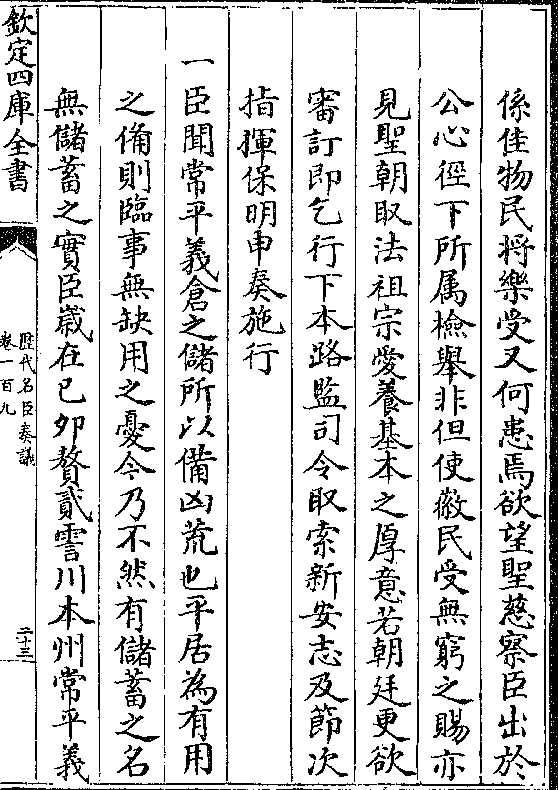 係佳物民将樂受又何患焉欲望聖慈察臣出於
公心徑下所属檢舉非但使徽民受無窮之賜亦
見聖朝取法祖宗愛養基本之厚意若朝廷更欲
審訂即乞行下本路監司令取索新安志及節次
指揮保明申奏施行
一臣聞常平義倉之儲所以備凶荒也平居為有用
之備則臨事無缺用之憂今乃不然有儲蓄之名
無儲蓄之實臣嵗在己卯贅貳霅川本州常平義
欽定四庫全書
歴代名臣奏議
卷一百九
二十三